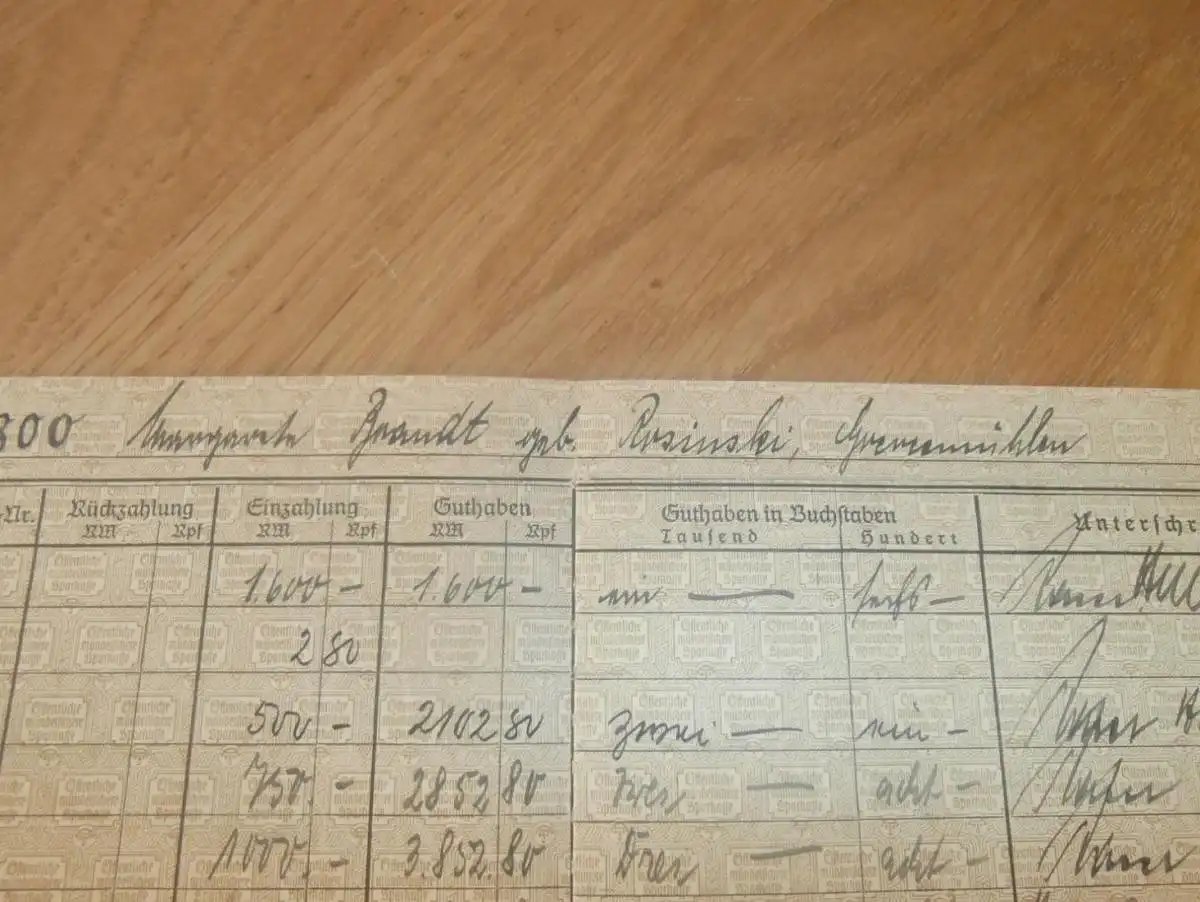 300 Margarete Brandt geb. Rosinski, Grevesmühlen
-Nr. Rückzahlung Einzahlung Guthaben Guthaben in Buchstaben Unterschr
RM Rpf RM Rpf RM Rpf Tausend Hundert
1.600 - 1.600 - ein — sechs -
2 80
500 - 2102 80 zwei — ein -
750. - 2852 80 — acht -
1000. - 3.852. 80 Drei — acht -